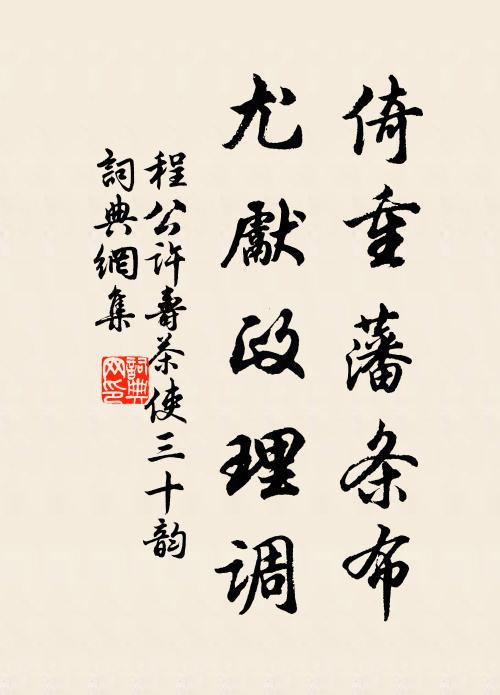 倚重藩条布
尤献政理调
程公许寿茶使三十韵
詞典網集
詞典网印